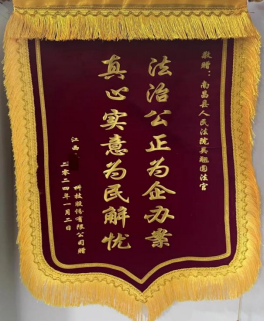 敬赠：南昌县人民法院吴鹍图法官
法治公正为企办案
真心实意为民解忧
江西 科技股份有限公司赠
二零二四年一月二日